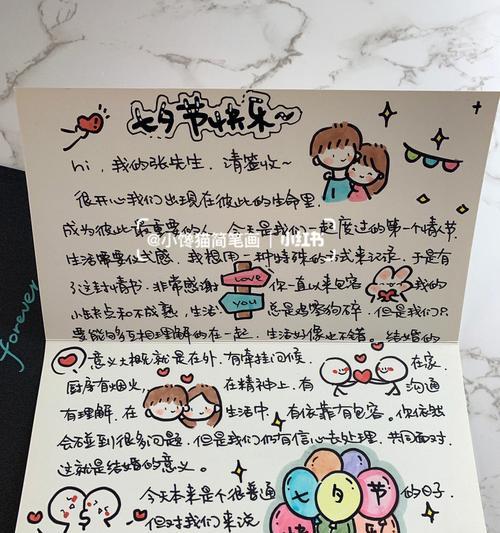 七夕节快乐~
hi,我的张先生,请签收~
很开心我们出现在彼此的生命里.
成为彼此最重要的人,今天是我们一起度过的第一个情人节
@小馋猫简笔画 | 小红书
生活需要仪式感,我想用一种特殊的方式来记录,于是有
了这封情书,非常感谢 你一直以来包容 我的
LOVE
小缺点和不成熟,生活 总是鸡零狗碎,但是我们只
YOU
要能够互相理解的在一起,生活好像也不错。结婚的
意义大概就是在外,有牵挂问候. 在家,
厨房有烟火, 在精神上,有 沟通
有理解,在 生活中,有依靠有包容。你
会碰到很多问题,但是我们仍有信心去处理,共同面对.
这就是结婚的意义。
今天本来是个很普通 的日子,
七夕节
但对我们来说
快乐
forever